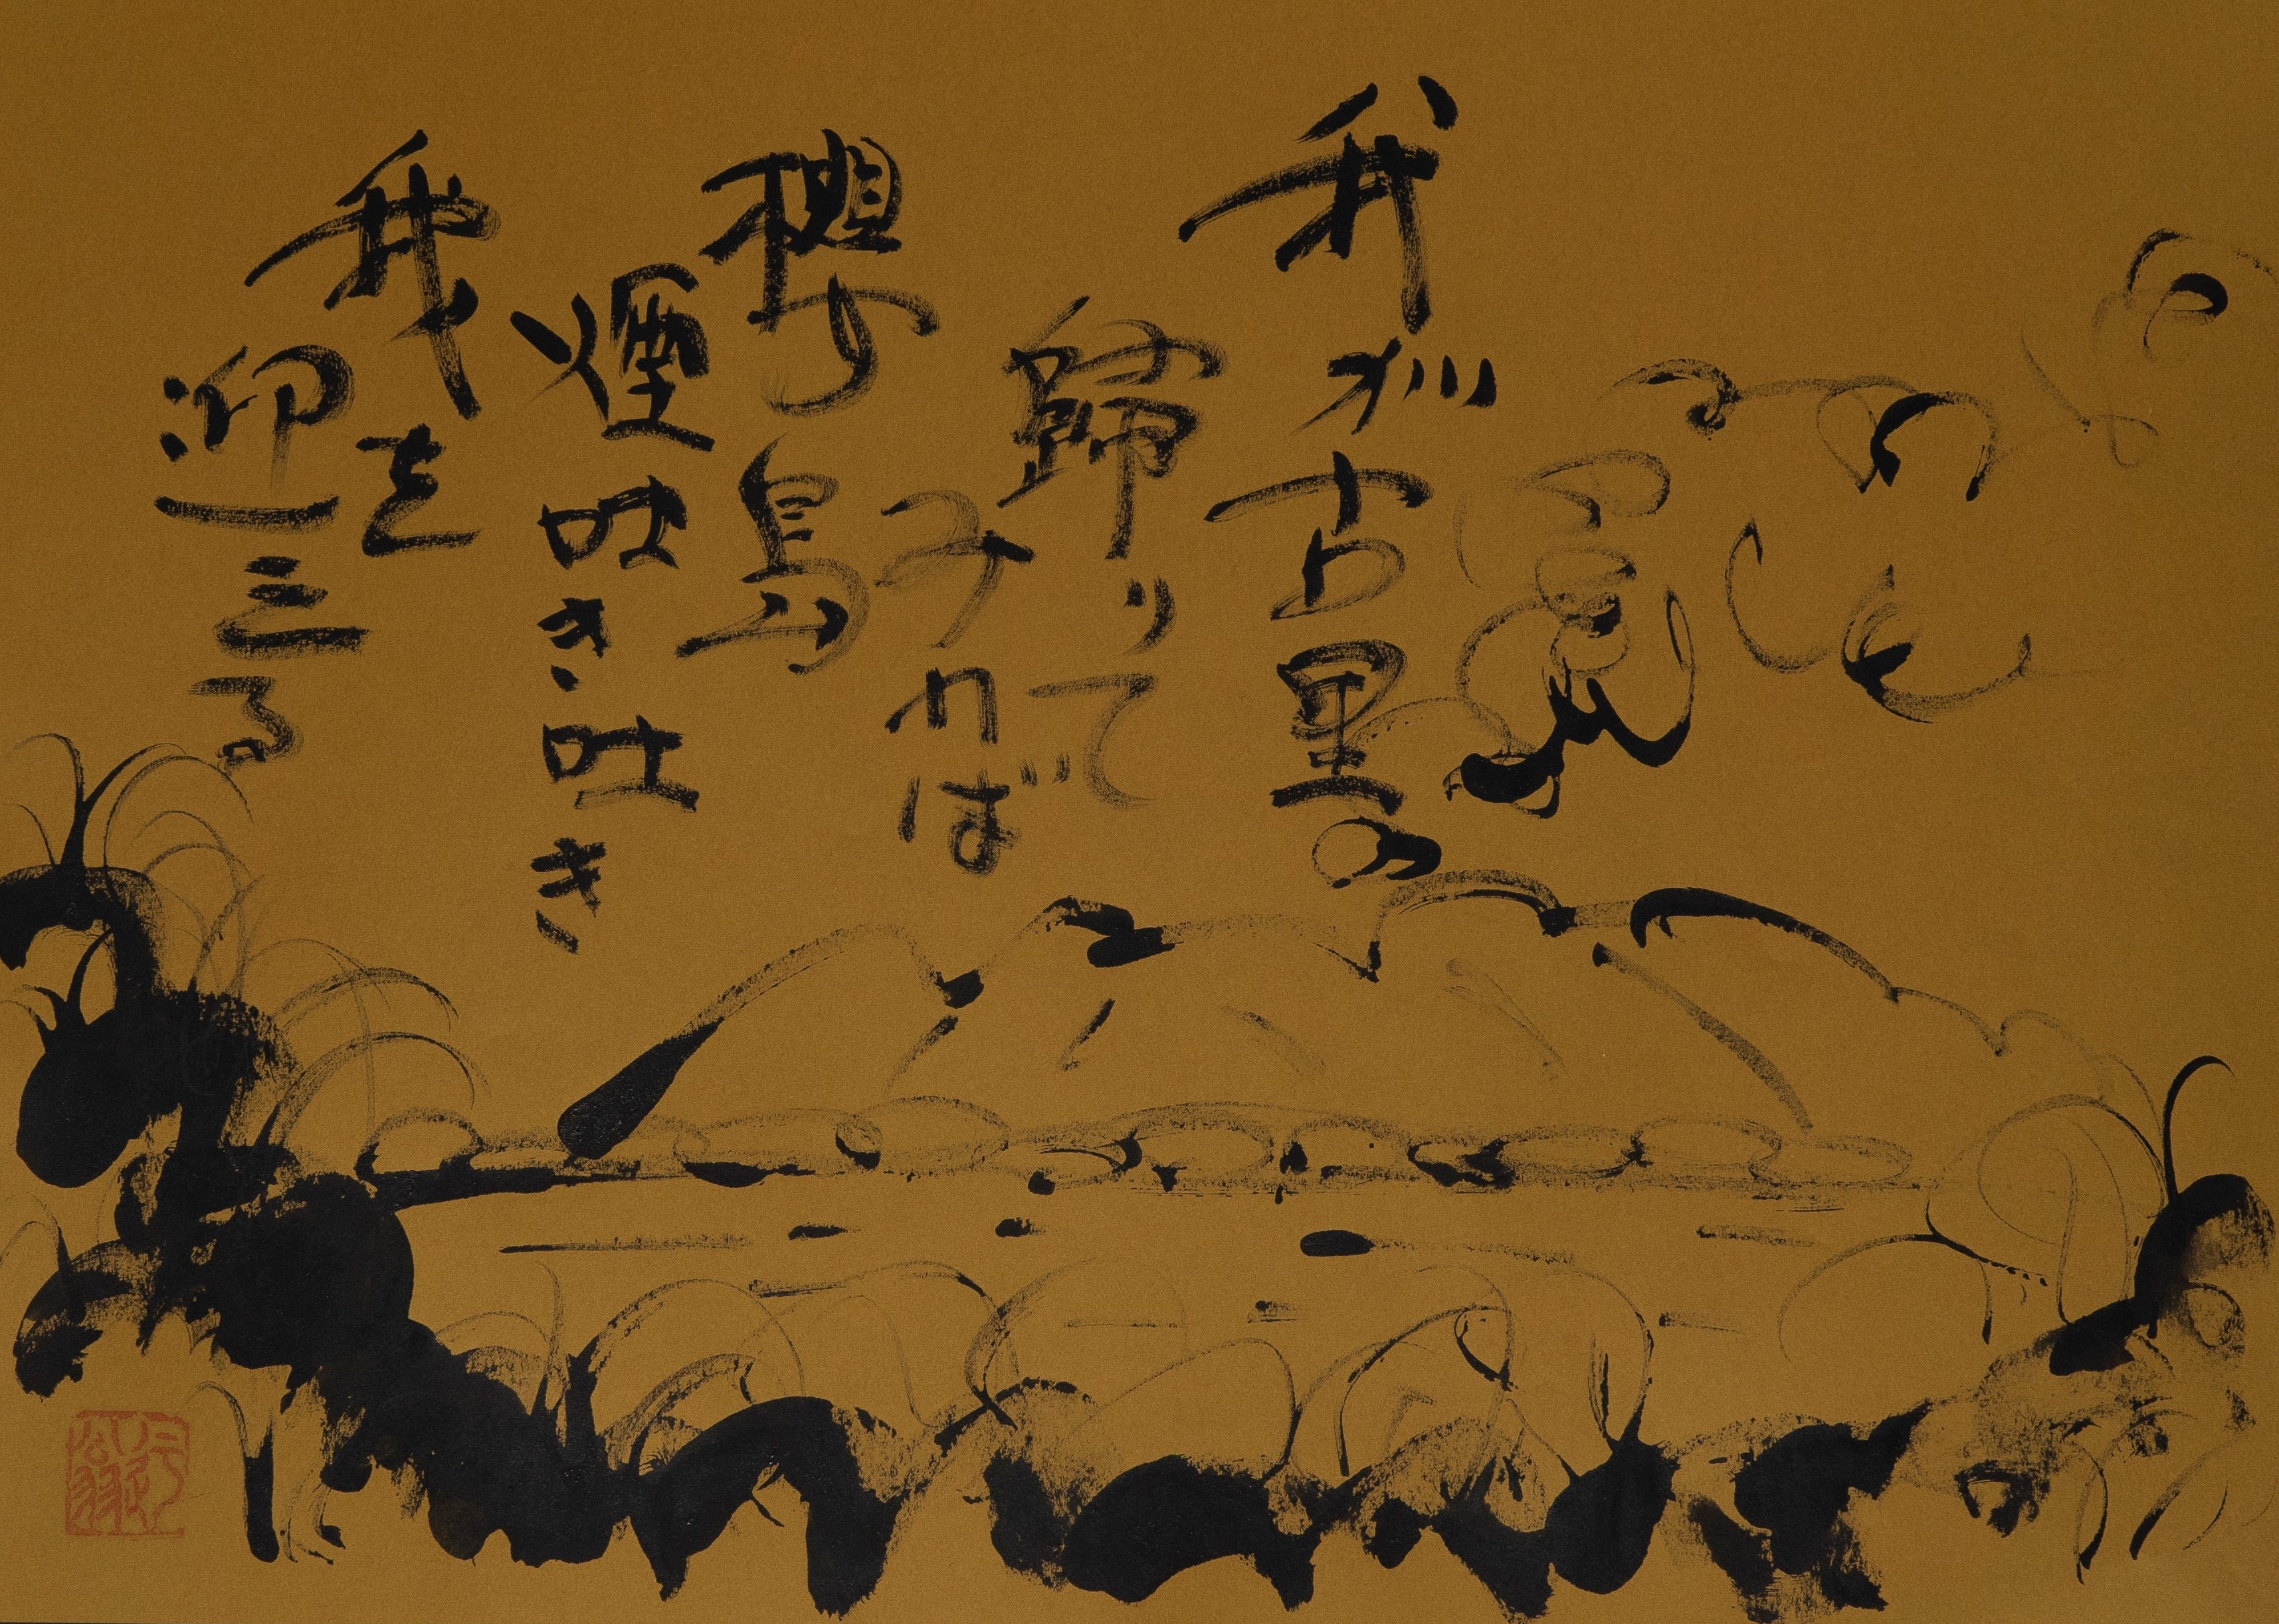 我が古里の
歸りて
みれば
櫻島
煙吐き吐き
我を
迎える